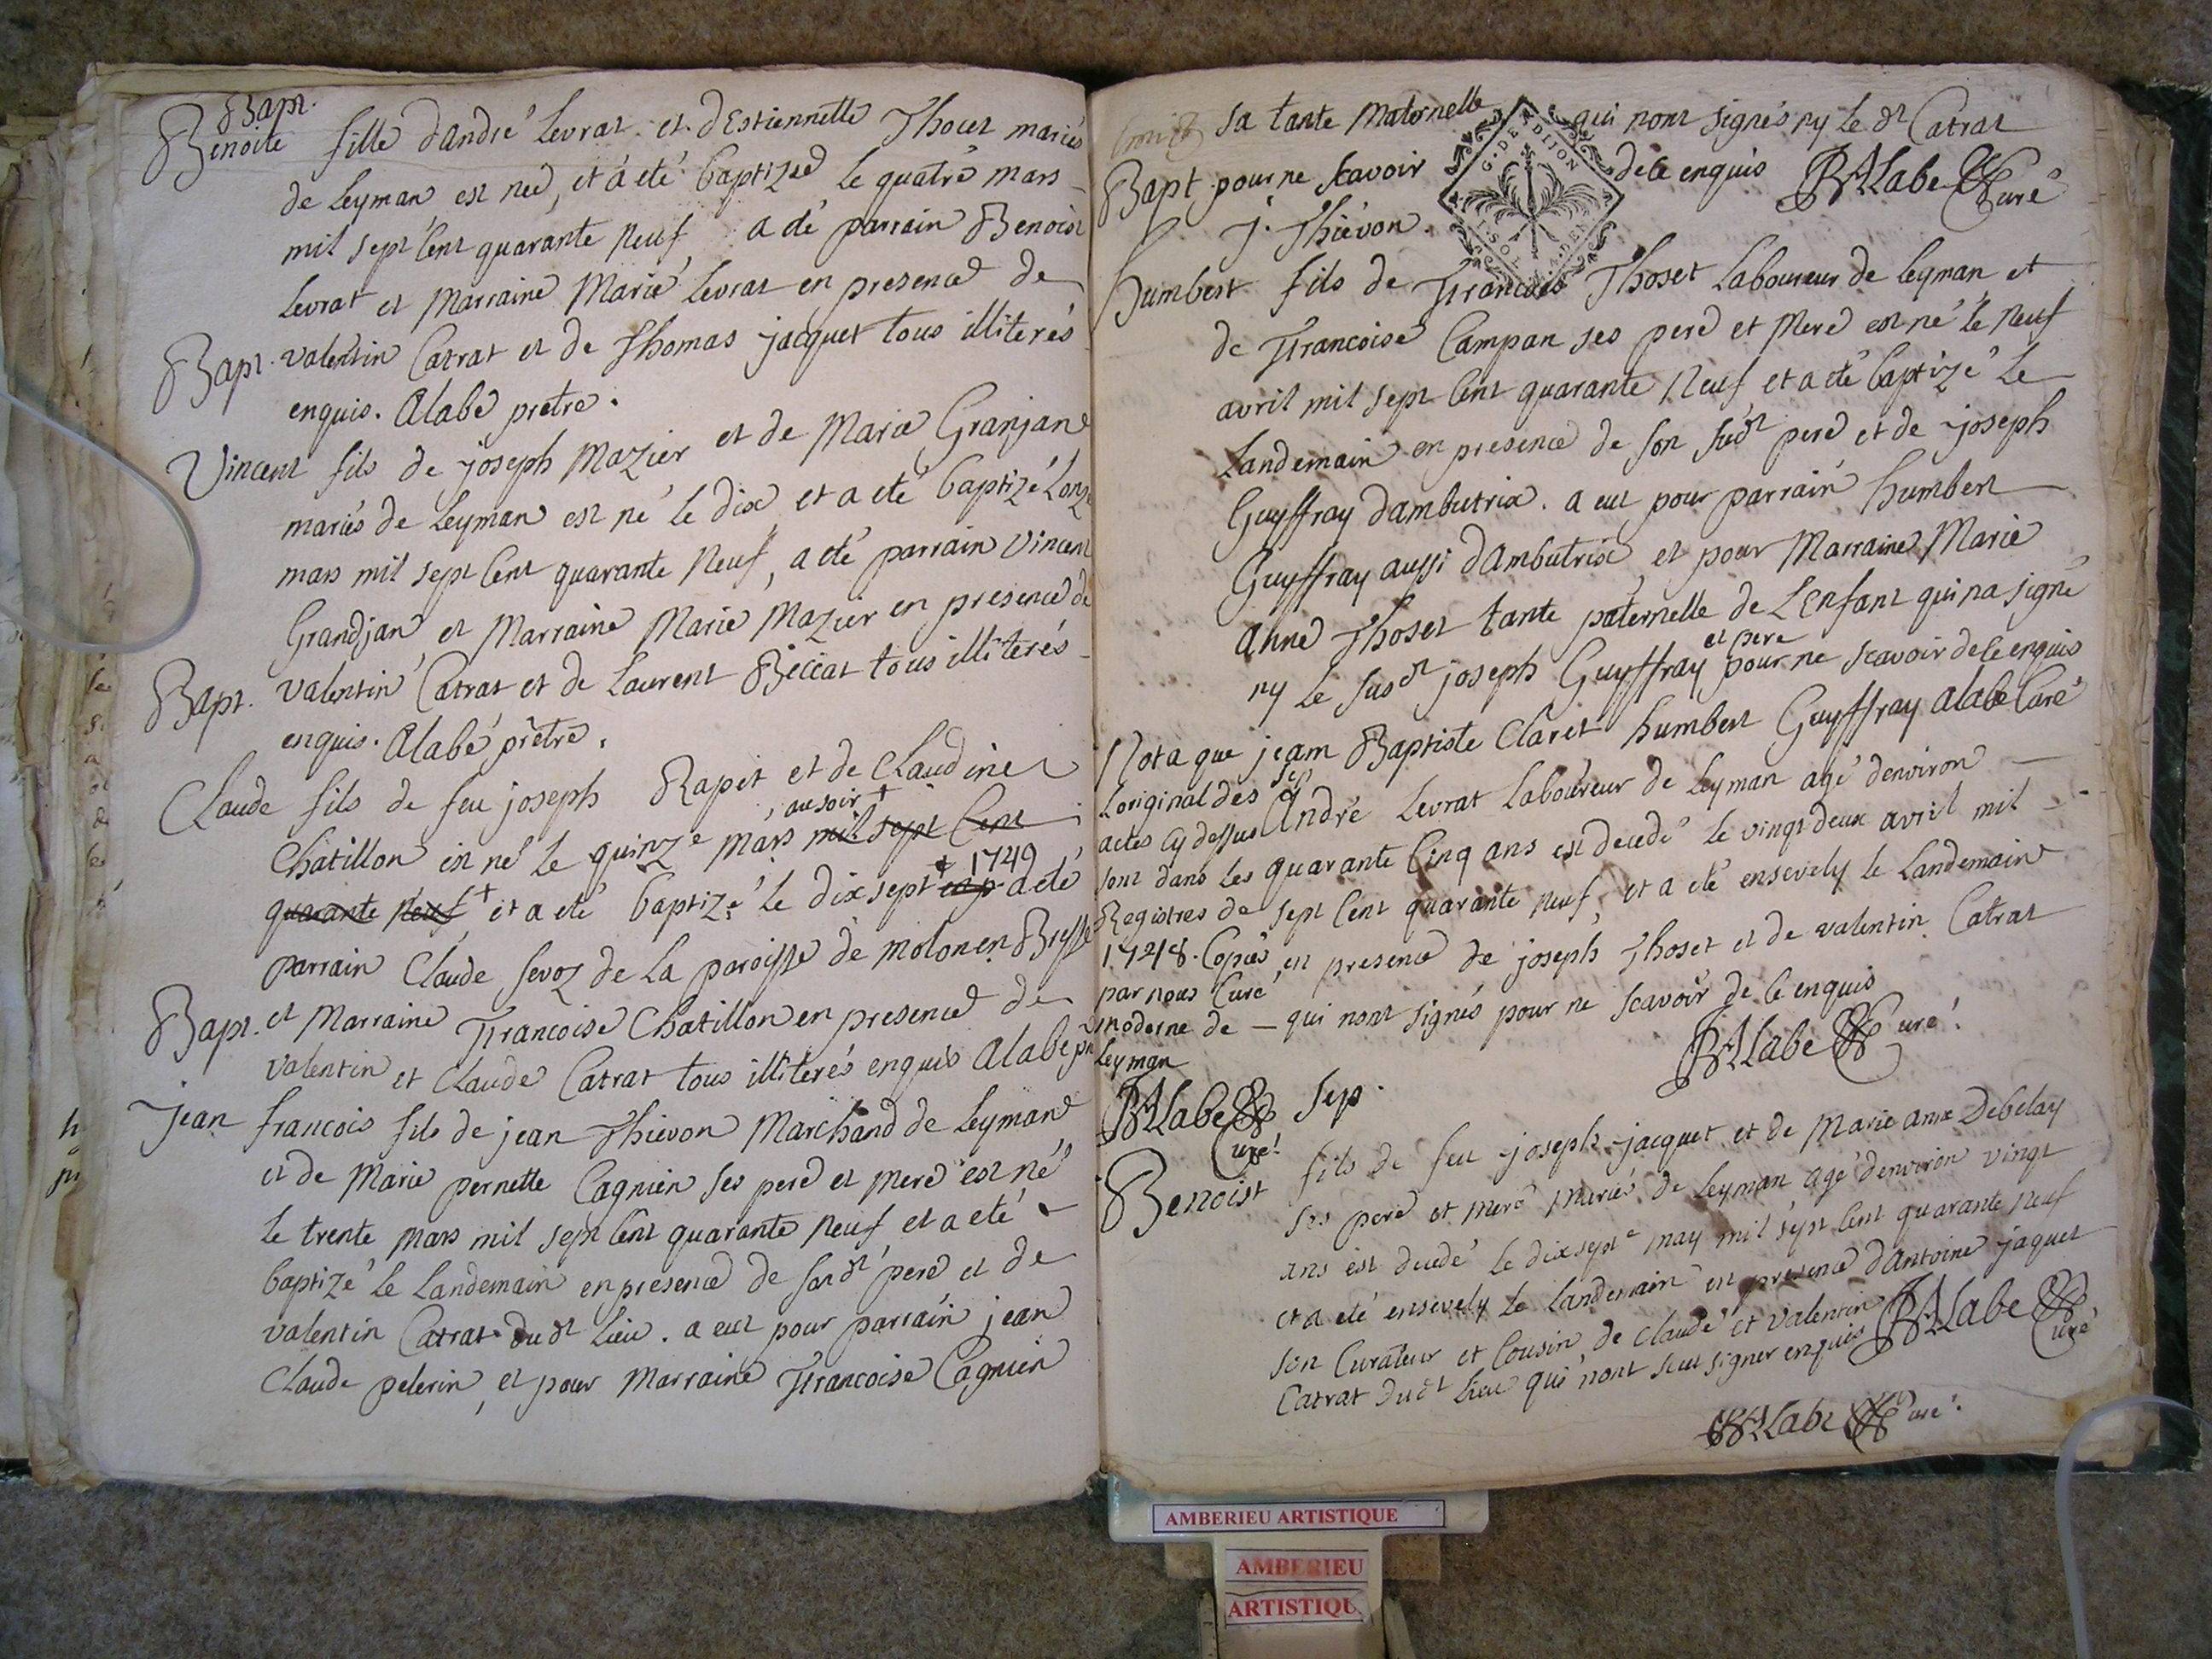 Bapt.
Benoite fille dandré Levrat et dEstiennette Thoset mariés
de Leyman est née, et á eté baptizée le quatre mars
mil sept Cent quarante neuf, a été parrain Benoist
Levrat et Marraine Marie Levrat en presence de
valentin Catrat et de Thomas jacquet tous illiterés
enquis. Alabe prêtre.
Bapt.
Vincent fils de joseph Mazier et de Marie Granjan
mariés de Leyman est né le dix et a eté baptizé Lonze
mars mil sept Cent quarante Neuf, a eté parrain Vincent
Grandjan, et Marraine Marie Mazier en presence de
valentin Catrat et de Laurent Beccat tous illiterés
enquis. Alabé prêtre.
Bapt.
Claude fils de feu joseph Rapet et de Claudine
Chatillon est né le quinze mars au soir † mil sept Cent
quarante Neuf † et a eté baptizé le dixsept † 1749 a eté
parrain Claude Sevoz de La paroisse de molon en Bresse
et Marraine Francoise Chatillon en presence de
valentin et Claude Catrat tous illiterés enquis Alabe
Bapt.
Jean francois fils de jean Thiévon Marchand de Leyman
et de Marie pernette Cagnien ses pere et mere est né
le trente mars mil sept Cent quarante Neuf et a eté
baptizé le Landemain en presence de sondt pere et de
valentin Catrat dudt Lieu. a eut pour parrain jean
Claude pelerin, et pour Marraine Francoise Cagnien
sa tante Maternelle qui nont signés ny le dt Catrat
pour ne scavoir de ce enquis BALabe Curé
J. Thiévon.
G. DE DIJON
Bapt
humbert fils de Francois Thoset Laboureur de Leyman et
de Francoise Campan ses pere et Mere est né le Neuf
avril mil sept Cent quarante Neuf et a eté baptizé le
Landemain en presence de son sudt pere et de joseph
Guyffray dambutrix. a eut pour parrain humbert
Guyffray aussi dAmbutrix, et pour Marraine Marie
Anne Thoset tante paternelle de LEnfant qui na signé
ny le susdt joseph Guyffray et pere pour ne scavoir de ce enquis
jean Baptiste Claret humbert Guyffray Alabe Curé
Nota que
Loriginal des
actes Cy dessus
sont dans les
Registres de
1748. Copiés
par nous Curé
moderne de
Leyman
BALabe
Curé!
Sep
André Levrat Laboureur de Leyman agé denviron
quarante Cinq ans est decedé le vingt deux avril mil
sept Cent quarante neuf, et a eté ensevely le Landemain
en presence de joseph Thoset et de valentin Catrat
qui nont signés pour ne scavoir de ce enquis
BALabe Curé!
Sep.
Benoist fils de feu joseph jacquet et de Marie Anne Debelay
ses pere et mere mariés de Leyman agé denviron vingt
ans est decedé le dixsept may mil sept Cent quarante neuf
et a eté ensevely le Landemain en presence dantoine jaquet
son Curateur et Cousin de Claude et Valentin
Catrat dudt Lieu qui nont sceu signer enquis BALabe Curé
BALabe Curé.
AMBERIEU ARTISTIQUE
AMBERIEU
ARTISTIQU